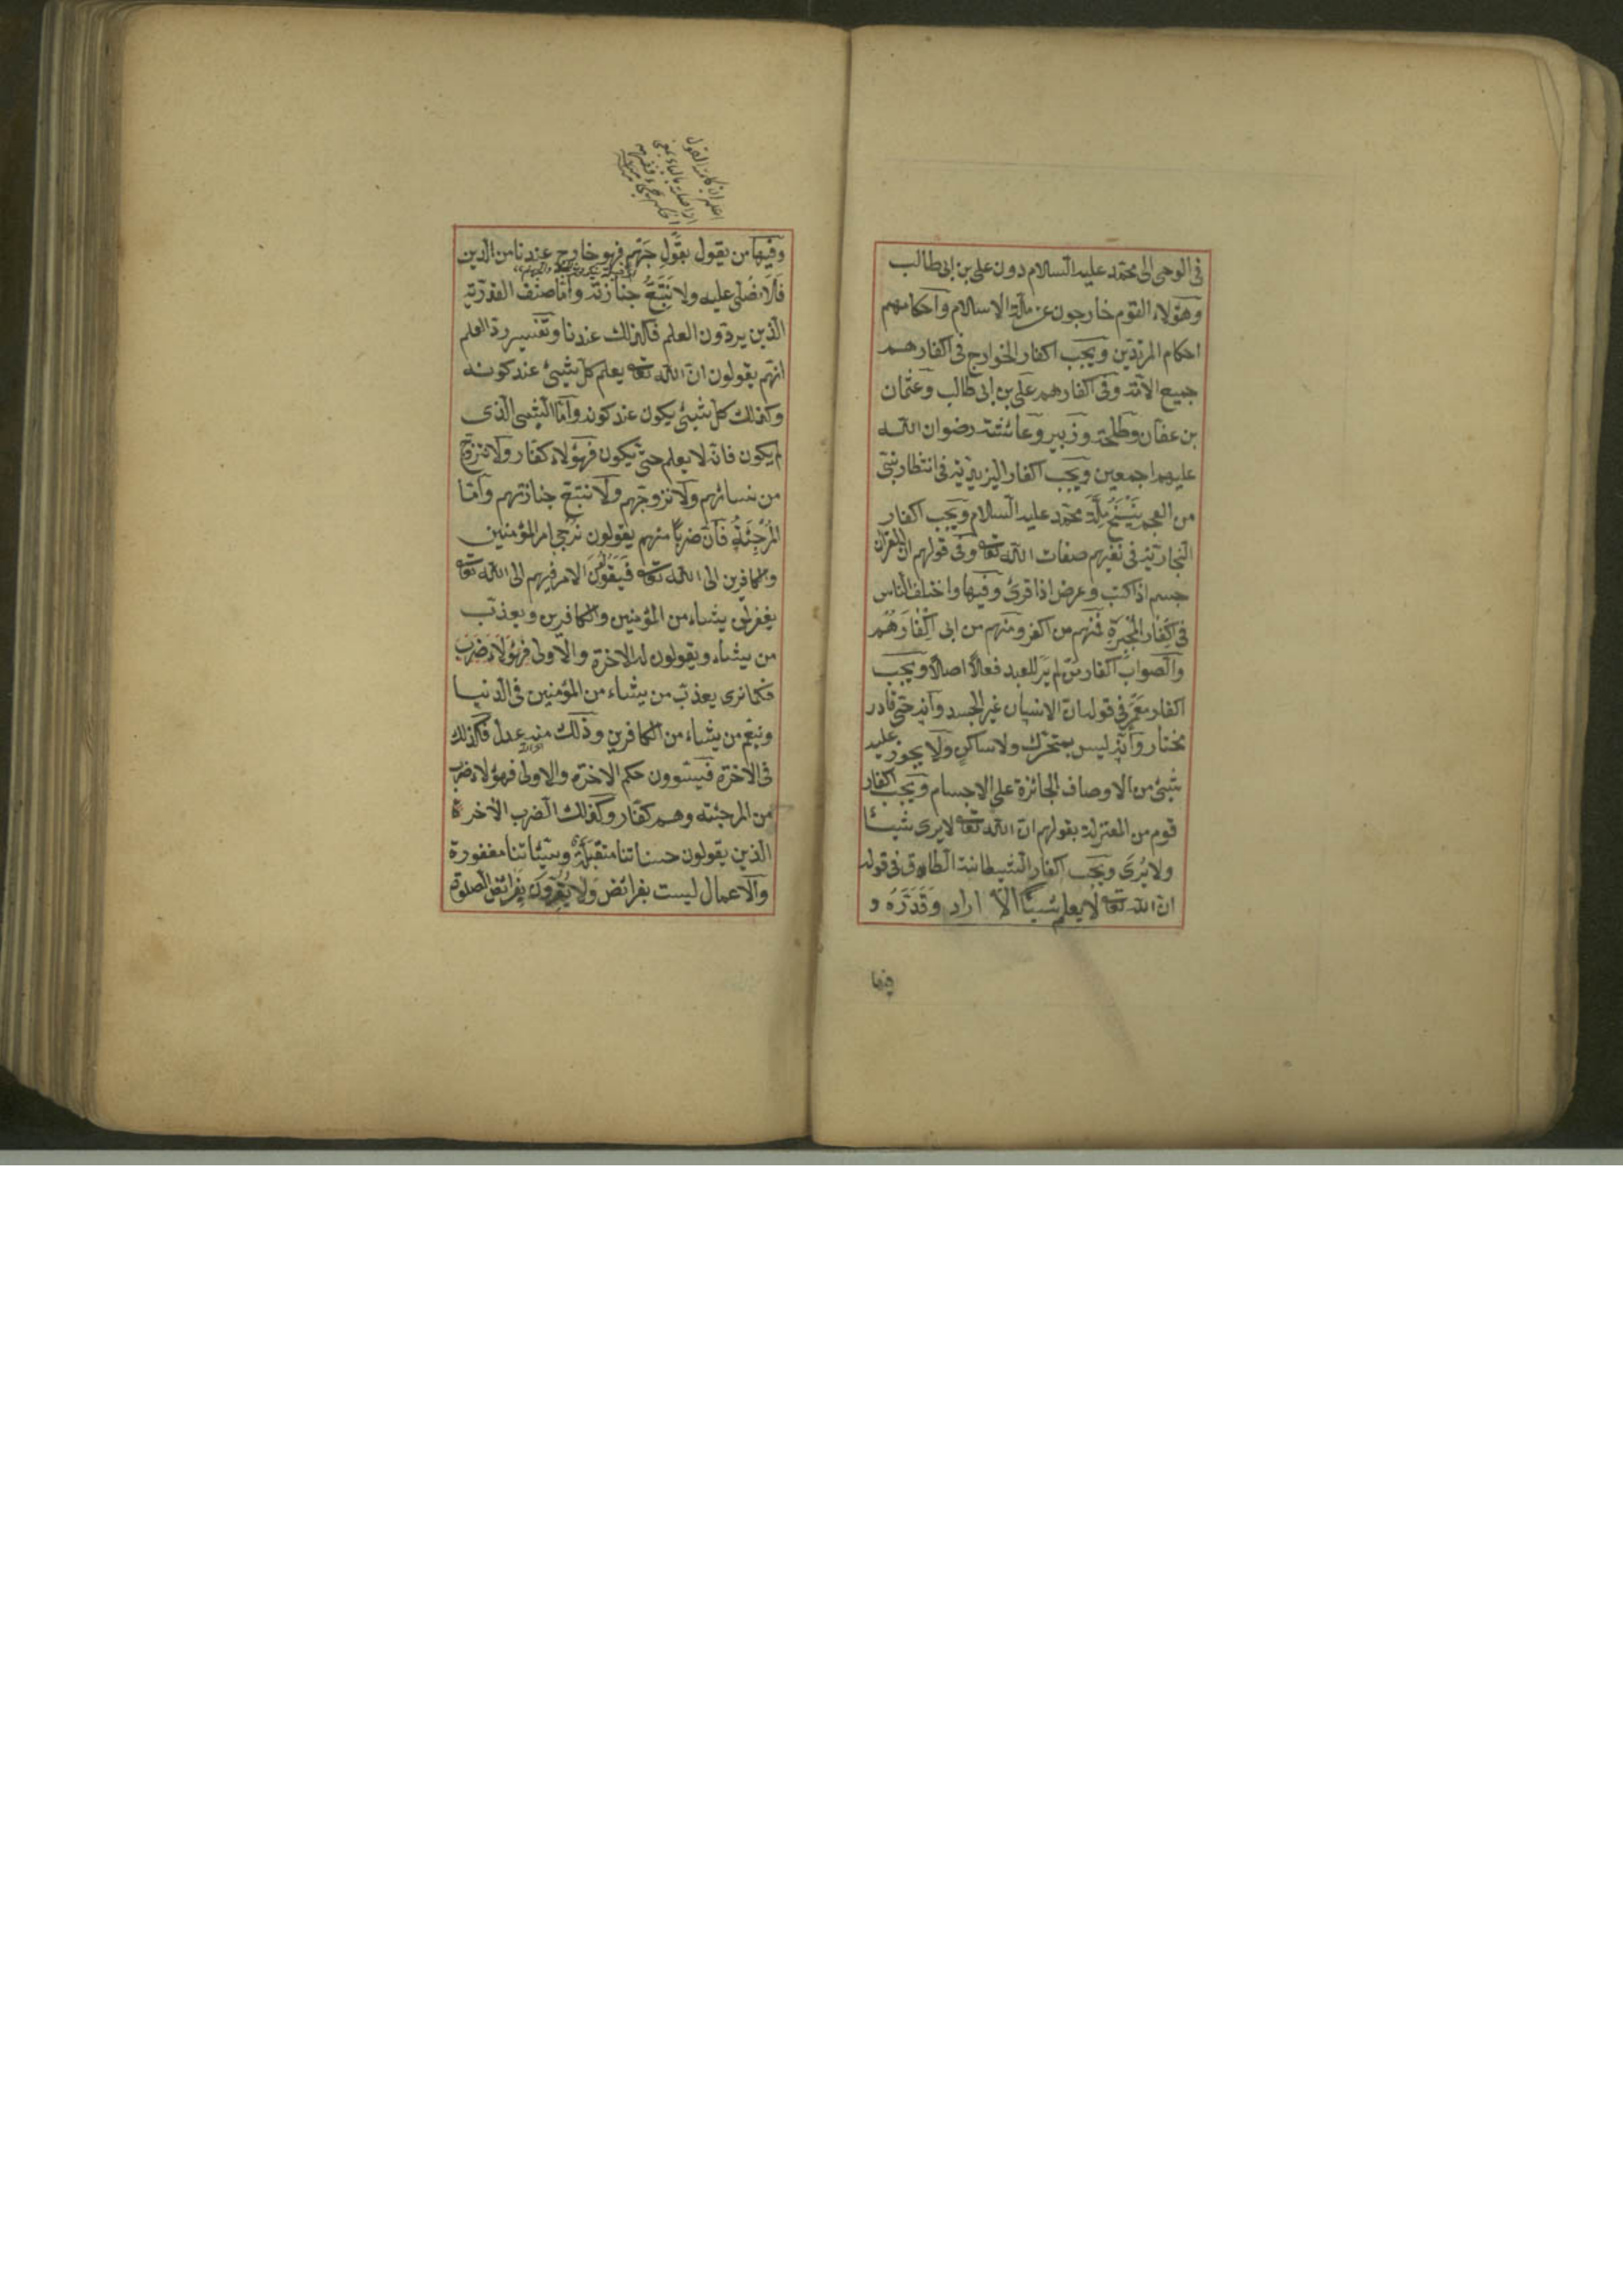 فى الوحى الى محمّد عليه السلام دون على بن ابى طالب
وهؤلاء القوم خارجون عن ملّة الاسلام وأحكامهم
احكام المرتدّين ويجب اكفار الخوارج فى اكفارهم
جميع الامّة وفى اكفارهم على بن ابى طالب وعثمان
بن عفان وطلحة وزبير وعائشة رضوان الله
عليهم اجمعين ويجب اكفار اليزيديّة فى انتظار نبىّ
من العجم يَنْسَخُ مِلَّةَ محمّد عليه السلام ويجب اكفار
النجاريّة فى نفيهم صفات الله تعالى وفى قولهم ان القران
جسم اذا كتب وعرض اذا قرئ وفيها واختلف الناس
فى اكفار المُجْبِرَة فمنهم من اكفر ومنهم من ابى اِكْفَارَهُم
والصواب اكفار مَن لم يَرَ للعبد فعلًا اصلًا ويجب
اكفار مَعْمَر فى قوله انّ الانسان غير الجسد وأنه حىّ قادر
مختار وأنه ليس بمتحرّك ولا ساكن ولا يجوز عليه
شئ من الاوصاف الجائزة على الاجسام ويجب اكفار
قوم من المعتزلة بقولهم انّ الله تعالى لا يرى شيئا
ولا يُرَى ويجب اكفار الشيطانية الطاق فى قوله
انّ الله تعالى لا يعلم شيئًا الّا اراد وقَدَّرَه و
فيها
وفيها من يقول بقَول جَهْم فهو خارج عندنا من الدين
فلا نصلّى عليه ولا نَتَّبَعُ جنازته وأمّا صنف القدريّة
الّذين يردّون العلم فكذلك عندنا وتفسير ردّ العلم
انهم يقولون انّ الله تعالى يعلم كلّ شئ عند كونه
وكذلك كلّ شئ يكون عند كونه وأمّا الشئ الّذى
لم يكون فانّه لا يعلم حتى يكون فهؤلاء كفّار ولا نتزوّج
من نسائهم ولا نزوجهم ولا نتبع جنازتهم وأمّا
المُرْجِئَةُ فانّ ضربًا منهم يقولون نُرْجِى امر المؤمنين
والكافرين الى الله تعالى فَيَقُولُونَ الامر فيهم الى الله تعالى
يغفر لمن يشاء من المؤمنين والكافرين ويعذّب
من يشاء ويقولون له الاخرة والاولى فهؤلاء ضَرْب
فكما نرى يعذّب من يشاء من المؤمنين فى الدنيا
وينعم من يشاء من الكافرين وذلك منه عدل فكذلك
فى الاخرة فيسوون حكم الاخرة والاولى فهؤلاء ضرب
من المرجئة وهم كفّار وكذلك الضرب الاخر
الّذين يقولون حسناتنا متقبّلة وسيّئاتنا مغفورة
والاعمال ليست بفرائض ولا يُقِرُّونَ بفرائض الصلوة